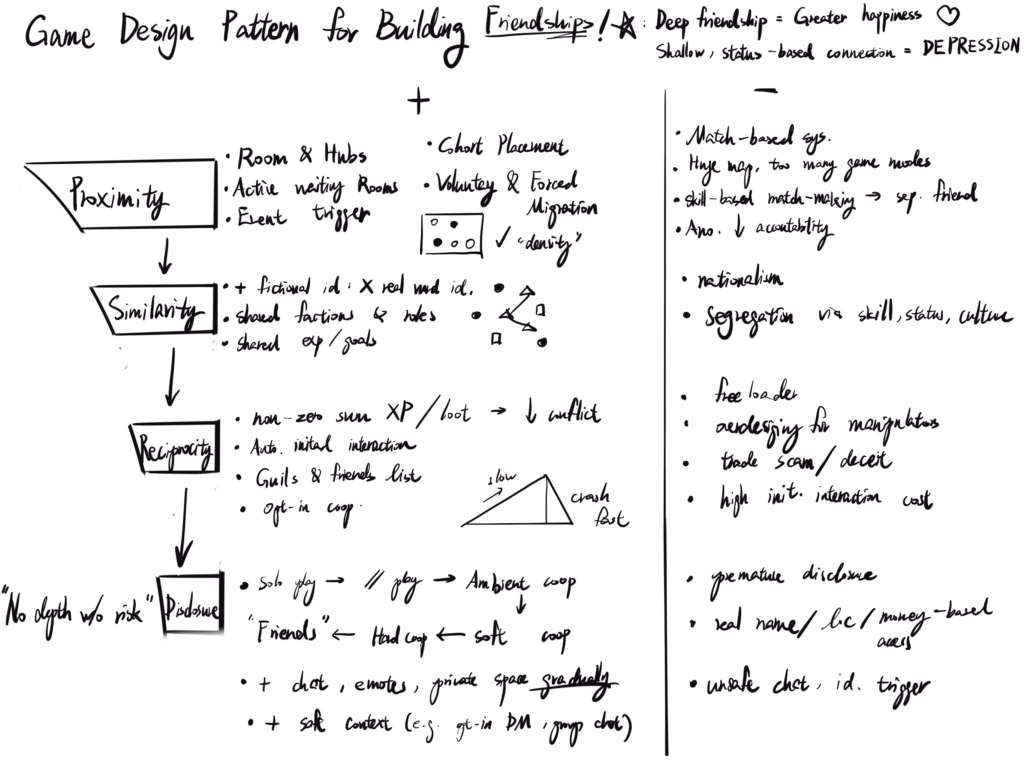 Game Design Pattern for Building Friendships! ☆ : Deep friendship = Greater happiness ♡
Shallow, status-based connection = DEPRESSION
+
Proximity
• Room & Hubs
• Active waiting Rooms
• Event trigger
• Cohort Placement
• Voluntey & Forced
Migration
✓ "density"
↓
Similarity
• + fictional id : X real id.
• shared factions & roles
• shared exp/goals
↓
Reciprocity
• non-zero sum XP / loot → ↓ conflict
• Auto. initial interaction
• Guils & friends list
• opt-in coop.
slow
crash
fast
↓
"No depth w/o risk"
Disclosure
• Solo play → // play → Ambient coop
↓
"Friends" ← Hard coop ← soft coop
• + chat, emotes, private space gradually
• + safe context (e.g. opt-in DM, group chat)
–
• Match-based sys.
• Huge map, too many game modes
• skill-based match-making → sep. friend
• Ano. ↓ accountability
• nationalism
• segregation via skill, status, culture
• free loader
• for manipulators
• trade scam / deceit
• high init. interaction cost
• premature disclosure
• real name / loc / money-based
access
• unsafe chat, id. trigger